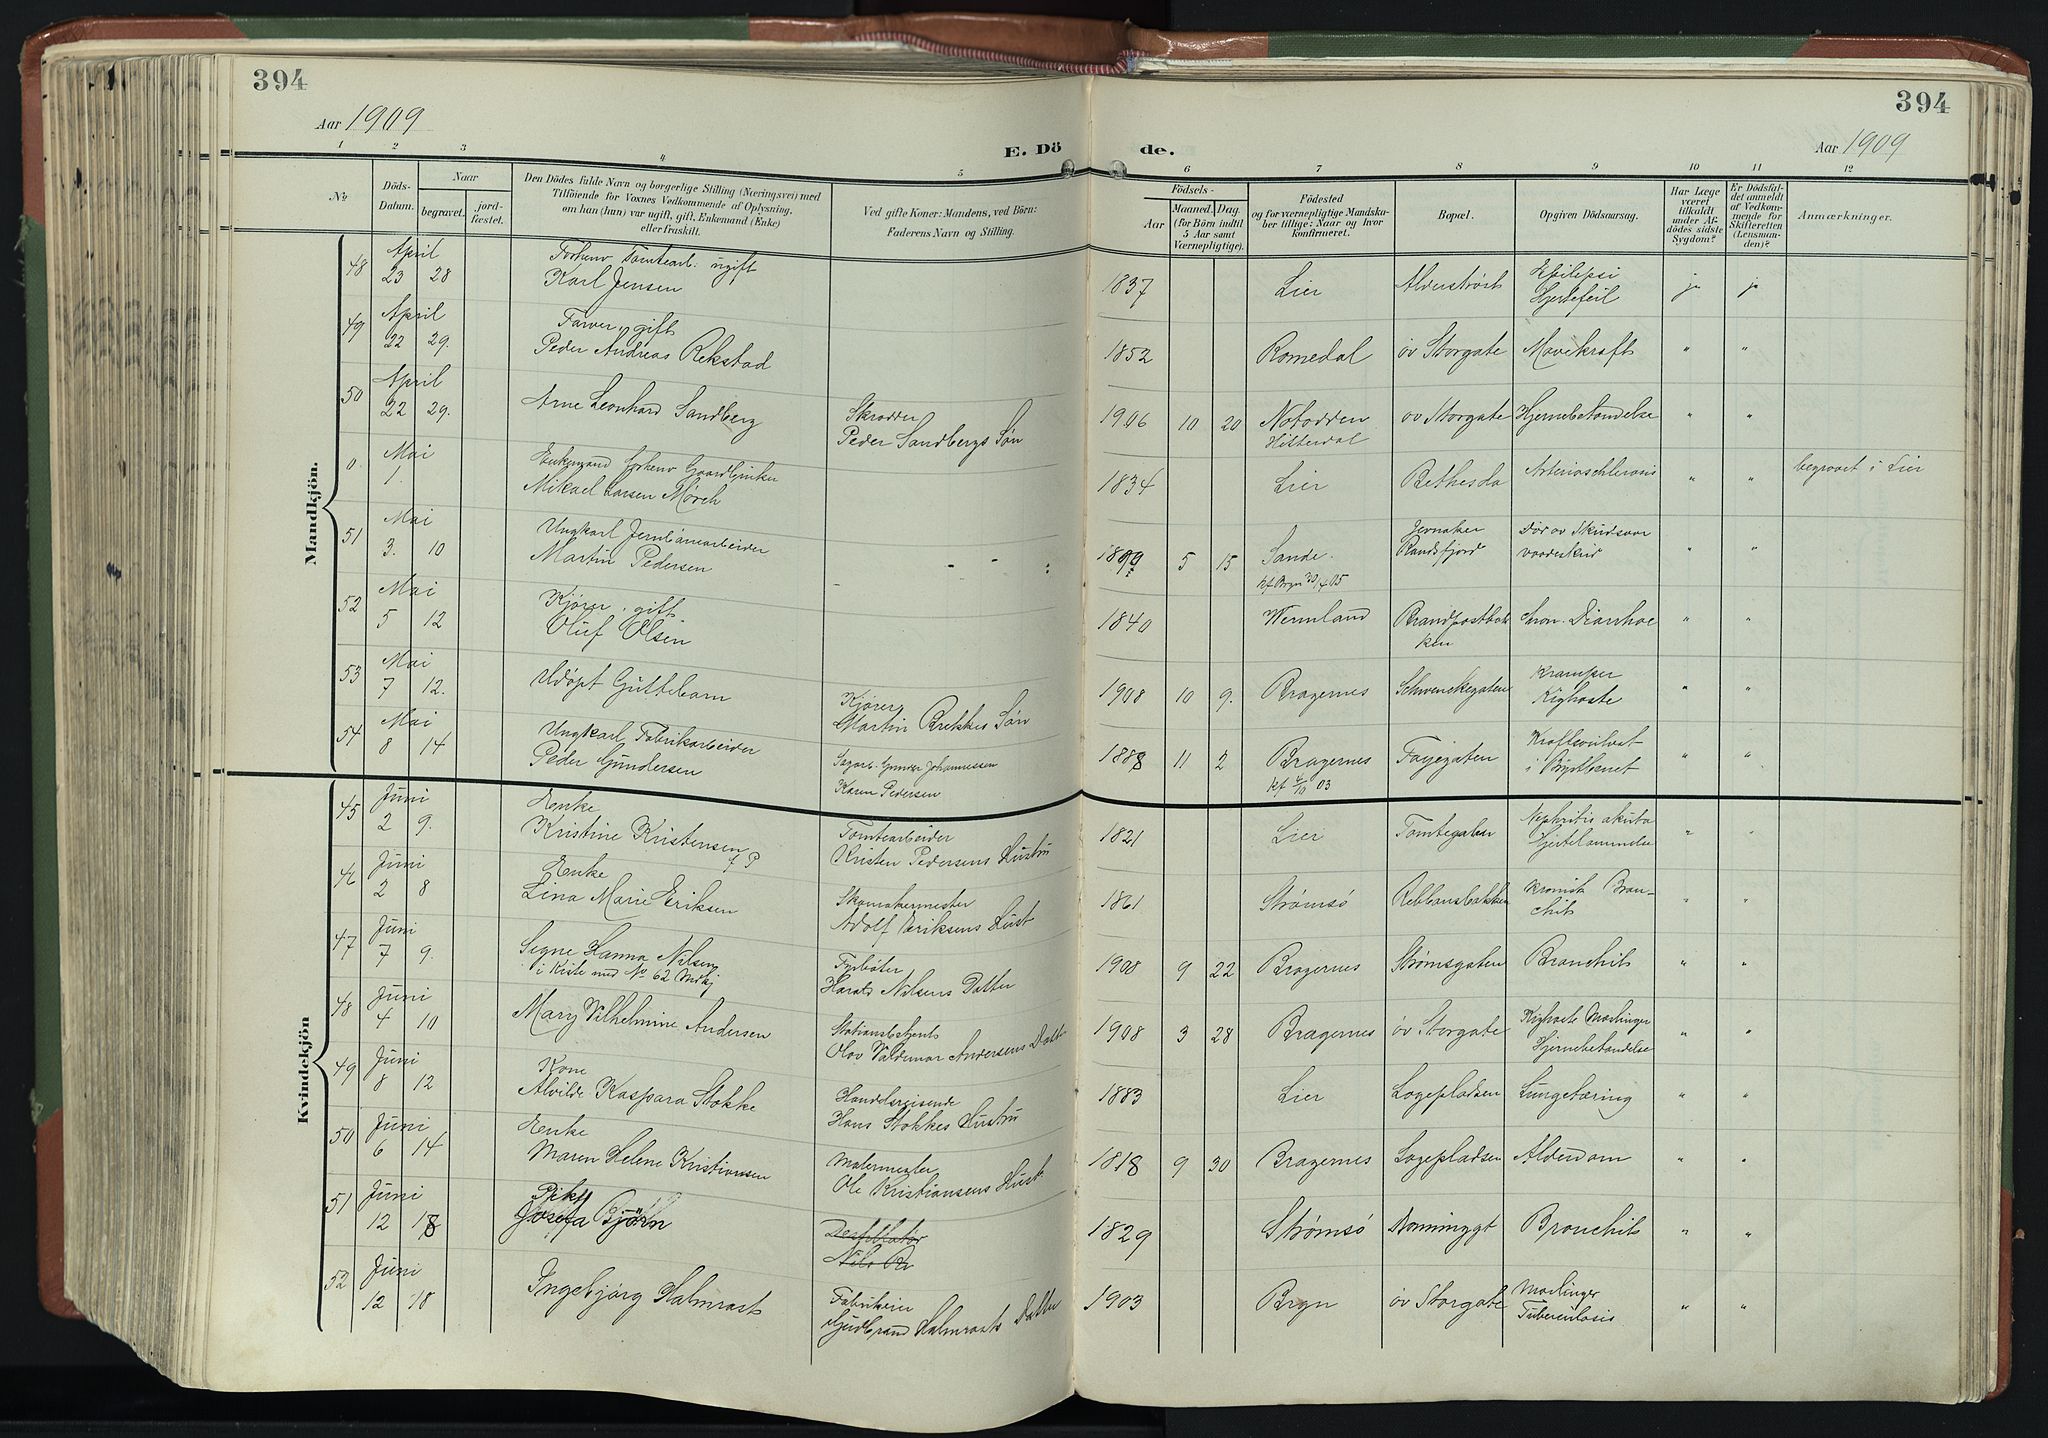 394
394
Aar 1909
E. Dö
de.
Aar 1909
1 2 3 4 5 6 7 8 9 10 11 12
No.
Döds-
Datum.
Naar
begravet.
jord-
fæstet.
Den Dödes fulde Navn og borgerlige Stilling (Næringsvei) med
Tilföiende for Voxnes Vedkommende af Oplysning,
om han (hun) var ugift, gift, Enkemand (Enke)
eller fraskilt.
Ved gifte Koner: Mandens, ved Börn:
Faderens Navn og Stilling.
Födsels-
Aar
Maaned. Dag.
(for Börn indtil
5 Aar samt
Værnepligtige).
Födested
og for værnepligtige Mandska-
ber tillige: Naar og hvor
konfirmeret.
Bopæl.
Opgiven Dödsaarsag.
Har Læge
været
tilkaldt
under Af-
dödes sidste
Sygdom?
Er Dödsfal-
det anmeldt
af Vedkom-
mende for
Skifteretten
(Lensman-
den)?
Anmærkninger.
Mandkjön.
48 April
23 28
Forhenv Tomtearb: ugift
Karl Jensen
1837 Lier Alderstrøst
Epilepsi
Hjertefeil
ja ja
49 April
22 29.
Farver, gift
Peder Andreas Rekstad
1852 Romedal öv Storgate Mavekræft " "
50 April
22 29.
Arne Leonhard Sandberg
Skrædder
Peder Sandbergs Søn
1906 10 20 Notodden
Hitterdal
öv Storgate Hjernebetændelse " "
0 Mai
1.
Enkemand forhenv Gaardbruker
Mikael Larsen Mørch
1834 Lier Bethesda Arterioschlerosis " " begravet i Lier
51 Mai
3. 10
Ungkarl Jernbanearbeider
Martin Pedersen
1890 5 15 Sande.
kf Bryn 30/4 05
Jevnaker
Randsfjord
Død av Skudsaar
vaadeskud
" "
52 Mai
5 12
Kjører, gift
Oluf Olsen
1840 Wermland
Brandpostbak
ken
chron. Diarrhoe " "
53 Mai
7 12.
Udøpt Guttebarn
Kjører
Martin Brekkes Søn
1908 10 9. Bragernes Schwenckegaten
Kramper
Kighoste
" "
54 Mai
8 14
Ungkarl Fabrikarbeider
Peder Gundersen
Sagarb. Gunder Johannessen
Karen Pedersen
1888 11 2 Bragernes
kf 4/10 03
Fayegaten
Kræftsvulst
i Brystbenet
" "
Kvindekjön
45 Juni
2 9.
Enke
Kristine Kristensen
f P
Tomtearbeider
Kristen Pedersens Hustru
1821 Lier Tomtegaten
Nephritis akuta
Hjertelammelse
" "
46 Juni
2 8
Enke
Lina Marie Eriksen
Skomakermester
Adolf Eriksens Hust
1861 Strømsö Rebbansbakken
kronisk Bron-
chit
" "
47 Juni
7 9.
Signe Hanna Nilsen
i Kiste med No 62 Mdkj
Fyrbøter
Harald Nilsens Datter
1908 9 22 Bragernes Strømsgaten Bronchit " "
48 Juni
4 10
Mary Vilhelmine Andersen
Stationsbetjent
Olov Valdemar Andersens Datt
1908 3 28 Bragernes öv Storgate
Kighoste Meslinger
Hjernebetændelse
" "
49 Juni
8 12
Kone
Alvilde Kaspara Stokke
Handelsreisende
Hans Stokkes Hustru
1883 Lier Logepladsen Lungetæring " "
50 Juni
6 14
Enke
Maren Helene Kristiansen
Malermester
Ole Kristiansens Hust.
1818 9 30 Bragernes Logepladsen Alderdom " "
51 Juni
12 18
Pike
Josefa Bjørn
Destillatør
Nils
1829 Strømsö Bronchit " "
52 Juni
12 18
Ingebjørg Halmrast
Fabrikeier
Gudbrand Halmrasts Datter
1903 Bryn öv Storgate
Meslinger
Tuberculosis
" "